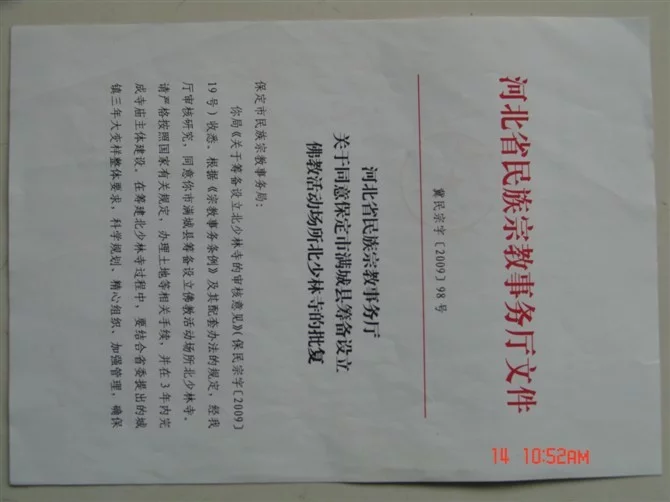 河北省民族宗教事务厅文件
冀民宗字〔2009〕98号
河北省民族宗教事务厅
关于同意保定市满城县筹备设立
佛教活动场所北少林寺的批复
保定市民族宗教事务局:
你局《关于筹备设立北少林寺的审核意见》(保民宗字〔2009〕
19号)收悉。根据《宗教事务条例》及其配套办法的规定,经我
厅审核研究,同意你市满城县筹备设立佛教活动场所北少林寺。
请严格按照国家有关规定,办理土地等相关手续,并在3年内完
成寺庙主体建设。在筹建北少林寺过程中,要结合省委提出的城
镇三年大变样整体要求,科学规划、精心组织、加强管理,确保
14 10:52AM